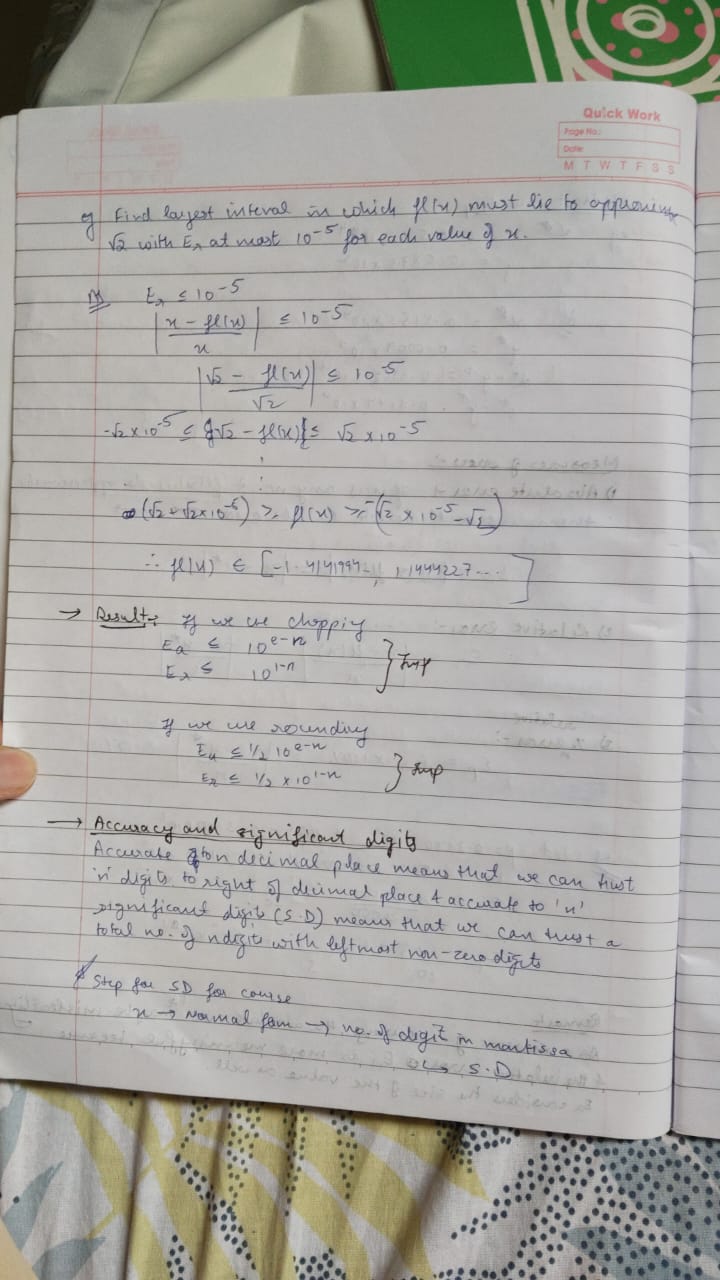 Quick Work
Page No.:
Date:
M T W T F S S
eg Find largest interval in which fl(x) must lie to approxim
√2 with Er at most 10^-5 for each value of x.
Er ≤ 10^-5
|x - fl(x) / x| ≤ 10^-5
|√2 - fl(x) / √2| ≤ 10^-5
-√2 x 10^-5 ≤ {√2 - fl(x)} ≤ √2 x 10^-5
:
(√2 + √2x10^-5) ≥ fl(x) ≥ -(√2 x 10^-5 - √2)
∴ fl(x) ∈ [-1.4141994.., 1.1444227... ]
→ Result:- If we use chopping
Ea ≤ 10^e-n
Er ≤ 10^1-n } Imp
If we use rounding
Ea ≤ 1/2 10^e-n
Er ≤ 1/2 x 10^1-n } Imp
→ Accuracy and significant digits
Accurate to n decimal place means that we can trust
'n' digits to right of decimal place & accurate to 'n'
significant digits (S.D) means that we can trust a
total no. of n digits with leftmost non-zero digits
Step for SD for course
x → Normal form → no. of digit in mantissa
↳ S.D